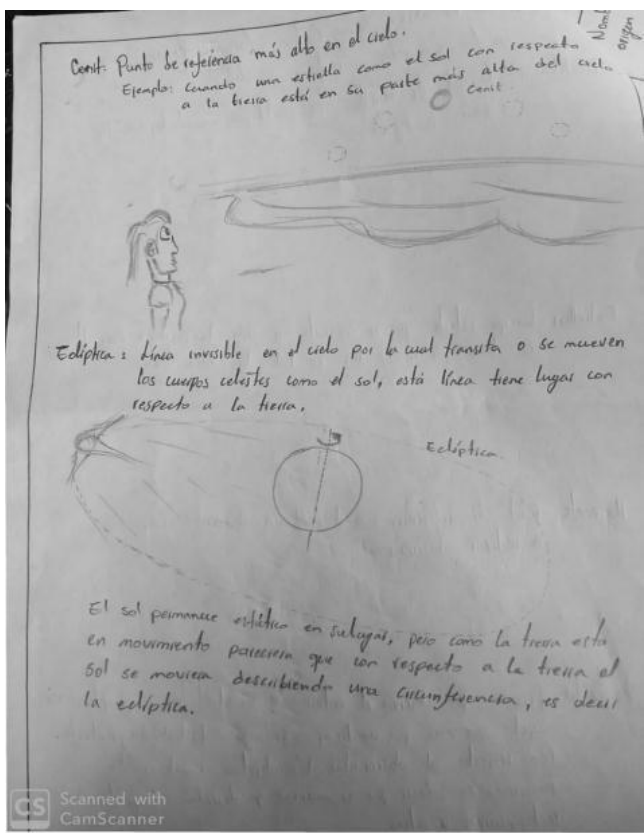 Nomb
origen
Cenit: Punto de referencia más alto en el cielo.
Ejemplo: Cuando una estrella como el sol con respecto
a la tierra está en su parte más alta del cielo
Cenit
Eclíptica: Línea invisible en el cielo por la cual transita o se mueven
los cuerpos celestes como el sol, está línea tiene lugar con
respecto a la tierra.
Eclíptica
El sol permanece estático en su lugar, pero como la tierra esta
en movimiento pareciera que con respecto a la tierra el
Sol se moviera describiendo una circunferencia, es decir
la eclíptica.
CS Scanned with
CamScanner